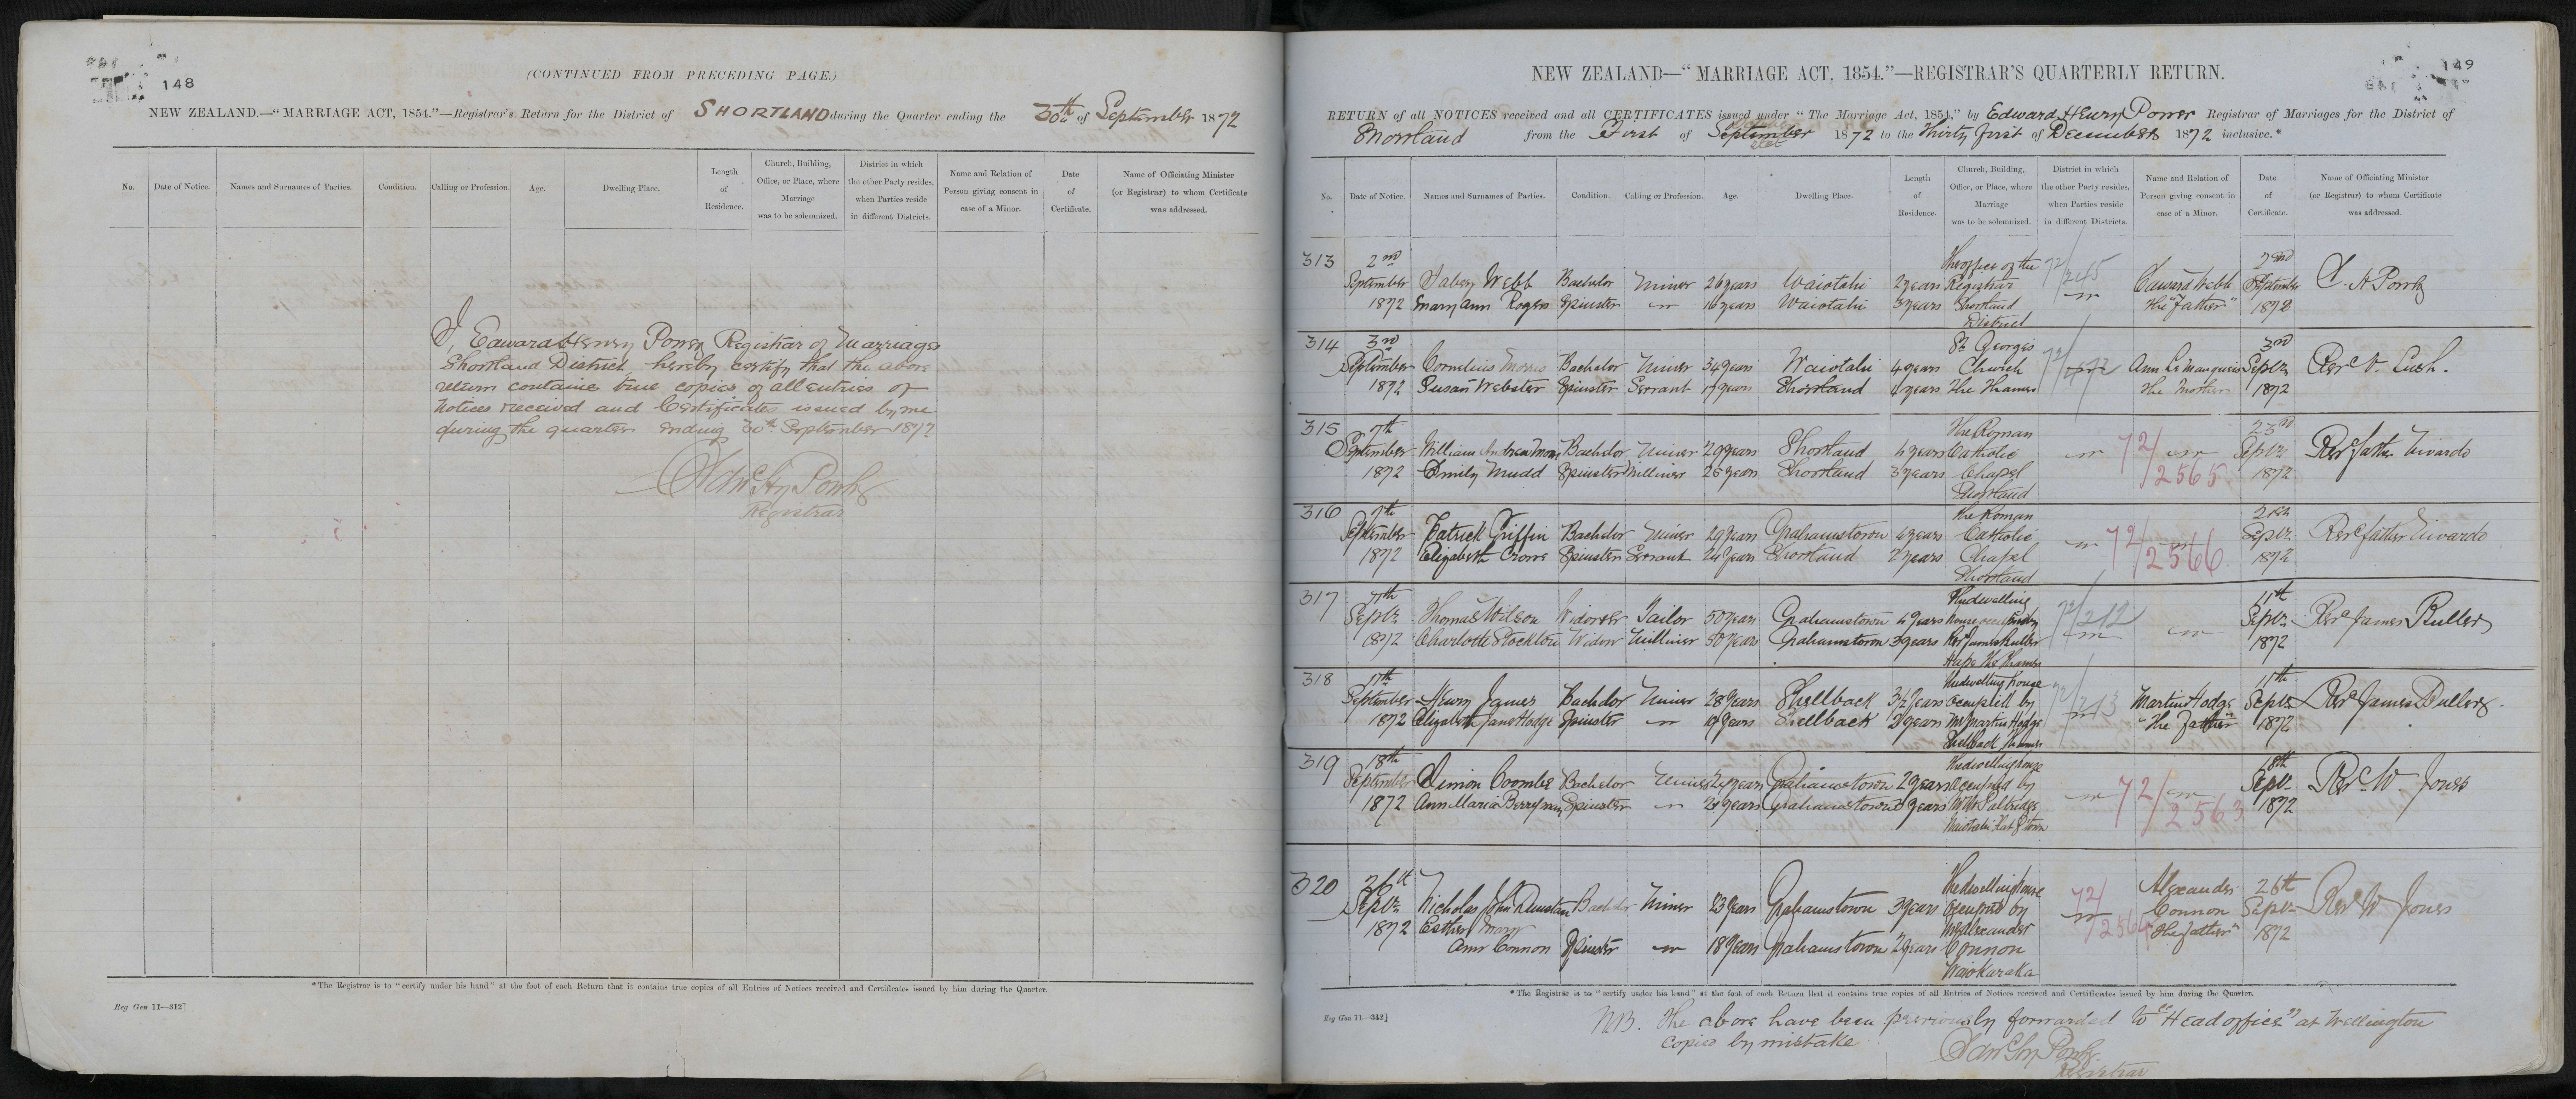 148
(CONTINUED FROM PRECEDING PAGE.)
NEW ZEALAND.—"MARRIAGE ACT, 1854."—Registrar's Return for the District of SHORTLAND during the Quarter ending the 30th of September 1872
No. Date of Notice. Names and Surnames of Parties. Condition. Calling or Profession. Age. Dwelling Place. Length of Residence. Church, Building, Office, or Place, where Marriage was to be solemnized. District in which the other Party resides, when Parties reside in different Districts. Name and Relation of Person giving consent in case of a Minor. Date of Certificate. Name of Officiating Minister (or Registrar) to whom Certificate was addressed.
I, Edward Henry Power Registrar of Marriages
Shortland District, hereby certify that the above
return contains true copies of all entries of
Notices received and Certificates issued by me
during the quarter ending 30th September 1872
Edwd Hy Power
Registrar
*The Registrar is to "certify under his hand" at the foot of each Return that it contains true copies of all Entries of Notices received and Certificates issued by him during the Quarter.
Reg Gen 11—312]
149
NEW ZEALAND—"MARRIAGE ACT, 1854."—REGISTRAR'S QUARTERLY RETURN.
RETURN of all NOTICES received and all CERTIFICATES issued under "The Marriage Act, 1854," by Edward Henry Power Registrar of Marriages for the District of
Shortland from the First of September 1872 to the Thirty first of December 1872 inclusive.*
No. Date of Notice. Names and Surnames of Parties. Condition. Calling or Profession. Age. Dwelling Place. Length of Residence. Church, Building, Office, or Place, where Marriage was to be solemnized. District in which the other Party resides, when Parties reside in different Districts. Name and Relation of Person giving consent in case of a Minor. Date of Certificate. Name of Officiating Minister (or Registrar) to whom Certificate was addressed.
313 2nd The office of the 72/245 2nd
September Webb Bachelor Miner 26 years Waiotahi 2 years Registrar Edward Webb September E. H Power
1872 Mary Ann Rogers Spinster 16 years Waiotahi 3 years Shortland The "Father" 1872
District
314 3rd St Georges 3rd
September Cornelius Morris Bachelor Miner 34 years Waiotahi 4 years Church 72/ Ann Le Manquais Septr Revd V. Lush.
1872 Susan Webster Spinster Servant 17 years Shortland 4 years The Thames The Mother 1872
315 7th The Roman 23rd
September William Andrew Bachelor Miner 29 years Shortland 4 years Catholic 72/2565 Septr Revd father Nivardo
1872 Emily Mudd Spinster Milliner 26 years Shortland 3 years Chapel 1872
Shortland
316 7th The Roman 21st
September Patrick Griffin Bachelor Miner 29 years Grahamstown 4 years Catholic 72/2566 Septr Revd father Nivardo
1872 Elizabeth Crowe Spinster Servant 24 years Shortland 2 years Chapel 1872
Shortland
317 11th The dwelling 72/212 11th
Septr Thomas Wilson Widower Tailor 50 years Grahamstown 4 years house occupied by Septr Revd James Buller
1872 Charlotte Stockton Widow Milliner 50 years Grahamstown 3 years Revd James Buller 1872
Hape The Thames
318 17th The dwelling house 72/213 11th
September Henry James Bachelor Miner 28 years Shellback 3½ years occupied by Martin Hodge Septr Revd James Buller
1872 Elizabeth Jane Hodge Spinster 19 years Shellback 2 years Mr Martin Hodge "The Father" 1872
Shellback Thames
319 18th The dwelling house 18th
September Simon Coombe Bachelor Miner 24 years Grahamstown 2 years occupied by 72/2563 Septr Revd W Jones
1872 Ann Maria Berryman Spinster 20 years Grahamstown 3 years Mr Wm Paltridge 1872
Waiotahi Flat G town
320 26th The dwelling house 72/256 Alexander 26th
Septr Nicholas John Dunstan Bachelor Miner 23 years Grahamstown 3 years occupied by Connon Septr Revd W Jones
1872 Esther Mary Mr Alexander "The father" 1872
Ann Connon Spinster 18 years Grahamstown 2 years Connon
Waiokaraka
*The Registrar is to "certify under his hand" at the foot of each Return that it contains true copies of all Entries of Notices received and Certificates issued by him during the Quarter.
Reg Gen 11—312]
NB. The above have been previously forwarded to "Head office" at Wellington
copied by mistake
Edwd Hy Power
Registrar